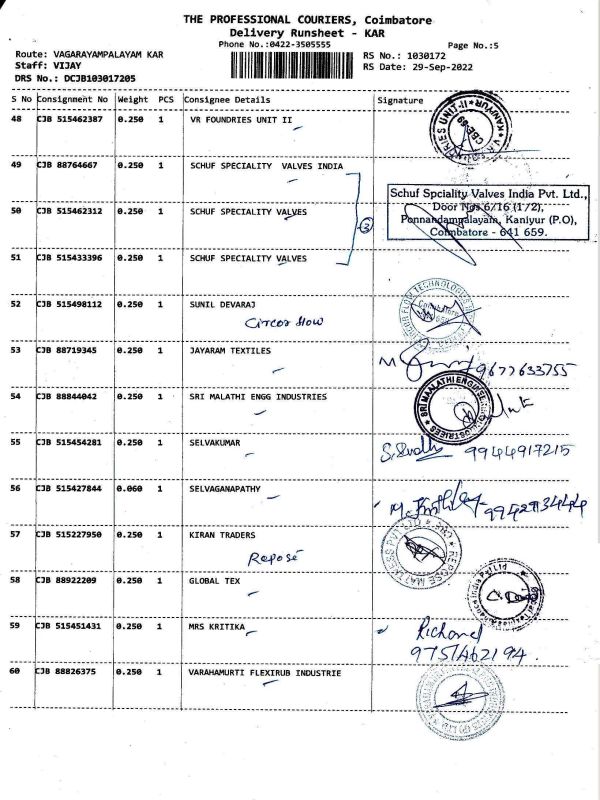 THE PROFESSIONAL COURIERS, Coimbatore
Delivery Runsheet - KAR
Phone No.:0422-3505555
Page No.:5
Route: VAGARAYAMPALAYAM KAR
RS No.: 1030172
Staff: VIJAY
RS Date: 29-Sep-2022
DRS No.: DCJB103017205
S No Consignment No Weight PCS Consignee Details Signature
48 CJB 515462387 0.250 1 VR FOUNDRIES UNIT II
49 CJB 88764667 0.250 1 SCHUF SPECIALITY VALVES INDIA
Schuf Spciality Valves India Pvt. Ltd.,
Door Nos 6/16 (1/2),
50 CJB 515462312 0.250 1 SCHUF SPECIALITY VALVES
3
Ponnandampalayam, Kaniyur (P.O),
Coimbatore - 641 659.
51 CJB 515433396 0.250 1 SCHUF SPECIALITY VALVES
52 CJB 515498112 0.250 1 SUNIL DEVARAJ
Circor flow
53 CJB 88719345 0.250 1 JAYARAM TEXTILES
9677633755
54 CJB 88844042 0.250 1 SRI MALATHI ENGG INDUSTRIES
SRI MAALATHI ENGG INDUSTRIES
55 CJB 515454281 0.250 1 SELVAKUMAR
9944917215
56 CJB 515427844 0.060 1 SELVAGANAPATHY
57 CJB 515227950 0.250 1 KIRAN TRADERS
Repose
REPOSE MATTRESS PVT LTD
58 CJB 88922209 0.250 1 GLOBAL TEX
59 CJB 515451431 0.250 1 MRS KRITIKA
Richard
9751462194.
60 CJB 88826375 0.250 1 VARAHAMURTI FLEXIRUB INDUSTRIE